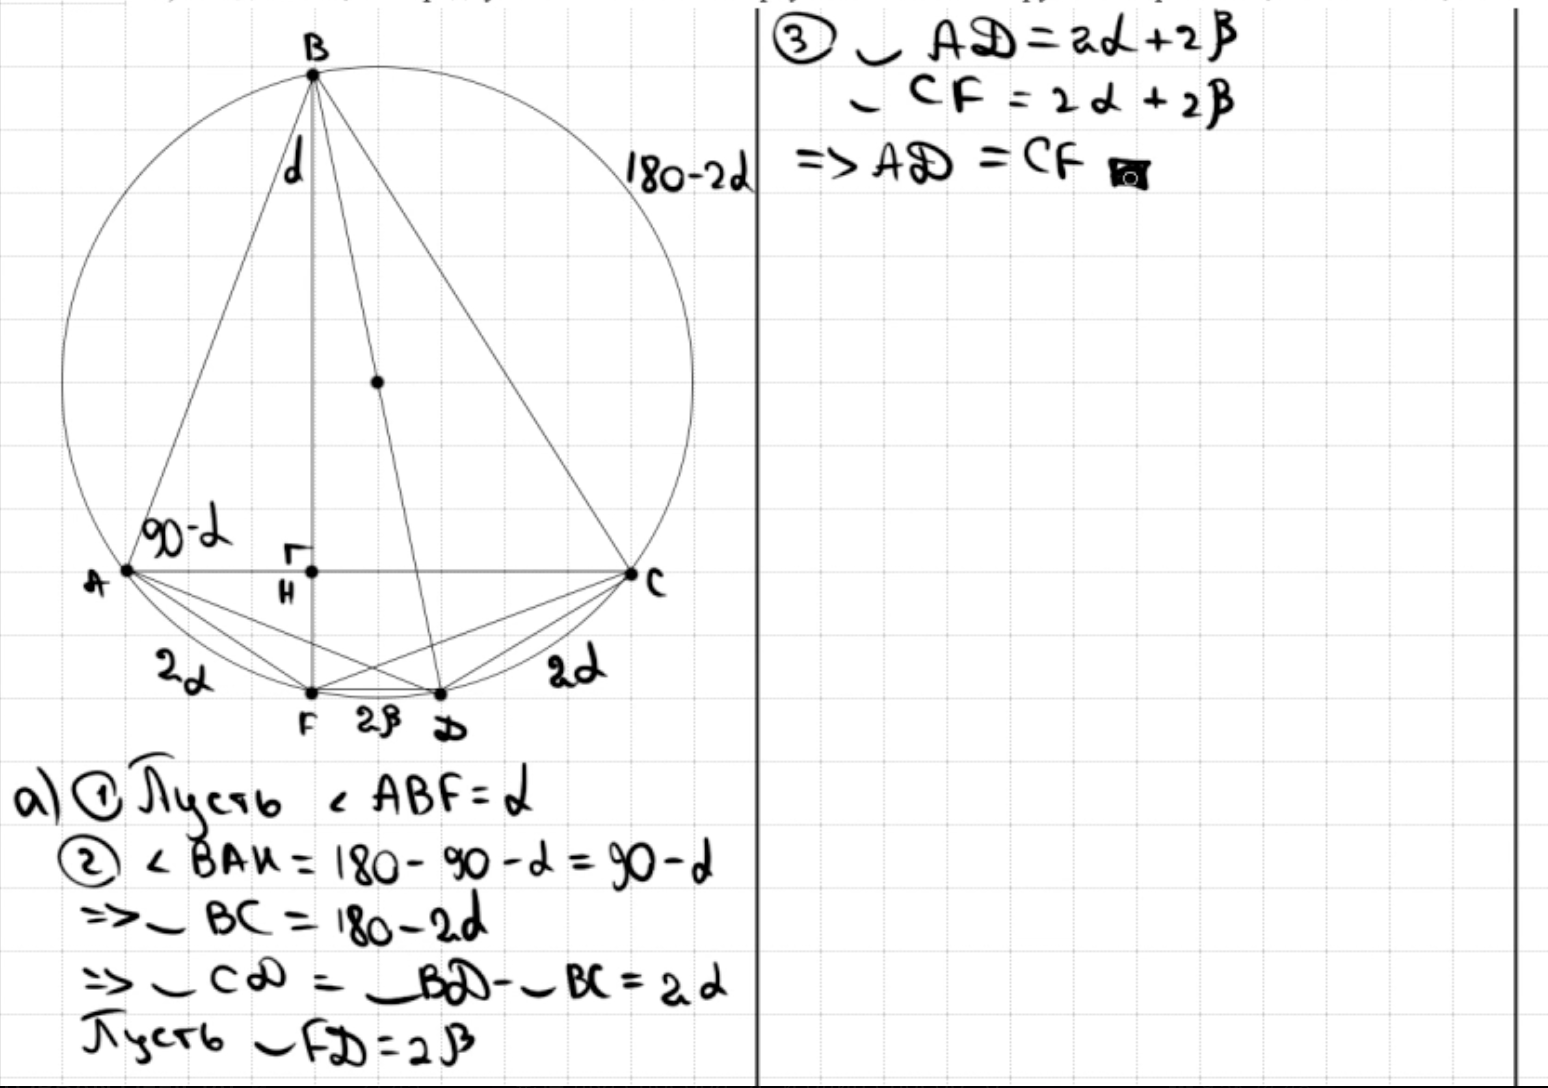 B
α
180-2α
90-α
A
H
C
2α
2α
F
2β
D
a) ① Пусть < ABF = α
② < BAH = 180 - 90 - α = 90 - α
=> ⌣ BC = 180 - 2α
=> ⌣ CD = ⌣ BD - ⌣ BC = 2α
Пусть ⌣ FD = 2β
③ ⌣ AD = 2α + 2β
⌣ CF = 2α + 2β
=> AD = CF